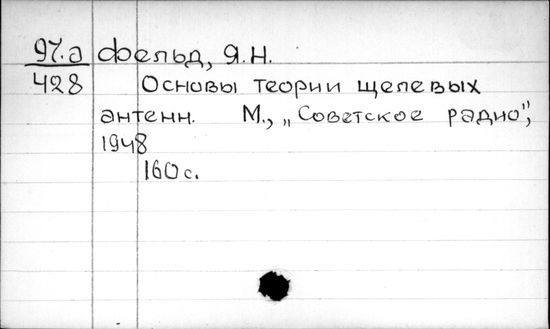 97.а Фельд, Я.Н.
428 Основы теории щелевых
антенн. М., „Советское радио",
1948
160с.